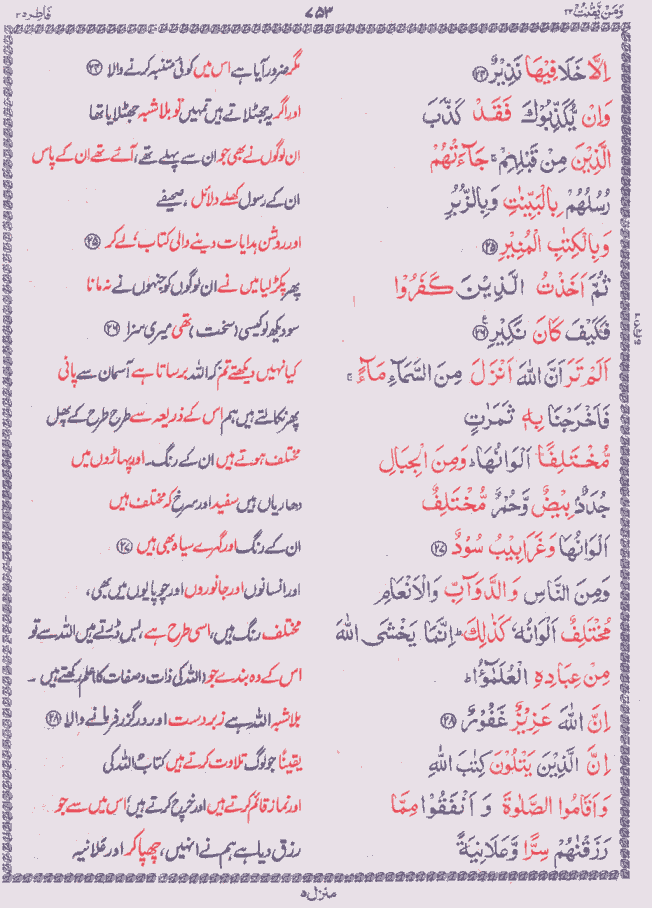 وَمَن يَّقْنُتْ ٢٢
٧٥٣
فَاطِر ٣٥
اِلَّا خَلَا فِيْهَا نَذِيْرٌ ﴿٢٤﴾
مگر ضرور آیا ہے اس میں کوئی متنبہ کرنے والا ﴿٢٤﴾
وَاِنْ يُّكَذِّبُوْكَ فَقَدْ كَذَّبَ
اور اگر یہ جھٹلاتے ہیں تمہیں تو بلاشبہ جھٹلایا تھا
الَّذِيْنَ مِنْ قَبْلِهِمْ ۚ جَآءَتْهُمْ
ان لوگوں نے بھی جو ان سے پہلے تھے، آئے تھے ان کے پاس
رُسُلُهُمْ بِالْبَيِّنٰتِ وَبِالزُّبُرِ
ان کے رسول کھلے دلائل، صحیفے
وَبِالْكِتٰبِ الْمُنِيْرِ ﴿٢٥﴾
اور روشن ہدایات دینے والی کتاب، لے کر ﴿٢٥﴾
ثُمَّ اَخَذْتُ الَّذِيْنَ كَفَرُوْا
پھر پکڑ لیا میں نے ان لوگوں کو جنہوں نے نہ مانا
فَكَيْفَ كَانَ نَكِيْرِ ﴿٢٦﴾
سو دیکھ لو کیسی (سخت) تھی میری سزا ﴿٢٦﴾
اَلَمْ تَرَ اَنَّ اللّٰهَ اَنْزَلَ مِنَ السَّمَآءِ مَآءً ۚ
کیا نہیں دیکھتے تم کہ اللہ برساتا ہے آسمان سے پانی
فَاَخْرَجْنَا بِهٖ ثَمَرٰتٍ
پھر نکالتے ہیں ہم اس کے ذریعہ سے طرح طرح کے پھل
مُّخْتَلِفًا اَلْوَانُهَا ؕ وَمِنَ الْجِبَالِ
مختلف ہوتے ہیں ان کے رنگ۔ اور پہاڑوں میں
جُدَدٌۢ بِيْضٌ وَّحُمْرٌ مُّخْتَلِفٌ
دھاریاں ہیں سفید اور سرخ کہ مختلف ہیں
اَلْوَانُهَا وَغَرَابِيْبُ سُوْدٌ ﴿٢٧﴾
ان کے رنگ اور گہرے سیاہ بھی ہیں ﴿٢٧﴾
وَمِنَ النَّاسِ وَالدَّوَآبِّ وَالْاَنْعَامِ
اور انسانوں اور جانوروں اور چوپایوں میں بھی،
مُخْتَلِفٌ اَلْوَانُهٗ كَذٰلِكَ ؕ اِنَّمَا يَخْشَى اللّٰهَ
مختلف رنگ ہیں، اسی طرح ہے، بس ڈرتے ہیں اللہ سے تو
مِنْ عِبَادِهِ الْعُلَمٰٓؤُا ؕ
اس کے وہ بندے جو (اللہ کی ذات و صفات کا) علم رکھتے ہیں ۔
اِنَّ اللّٰهَ عَزِيْزٌ غَفُوْرٌ ﴿٢٨﴾
بلاشبہ اللہ ہے زبردست اور درگزر فرمانے والا ﴿٢٨﴾
اِنَّ الَّذِيْنَ يَتْلُوْنَ كِتٰبَ اللّٰهِ
یقیناً جو لوگ تلاوت کرتے ہیں کتابُ اللہ کی
وَاَقَامُوا الصَّلٰوةَ وَ اَنْفَقُوْا مِمَّا
اور نماز قائم کرتے ہیں اور خرچ کرتے ہیں اس میں سے جو
رَزَقْنٰهُمْ سِرًّا وَّعَلَانِيَةً
رزق دیا ہے ہم نے انہیں، چھپا کر اور علانیہ
منزل ٥